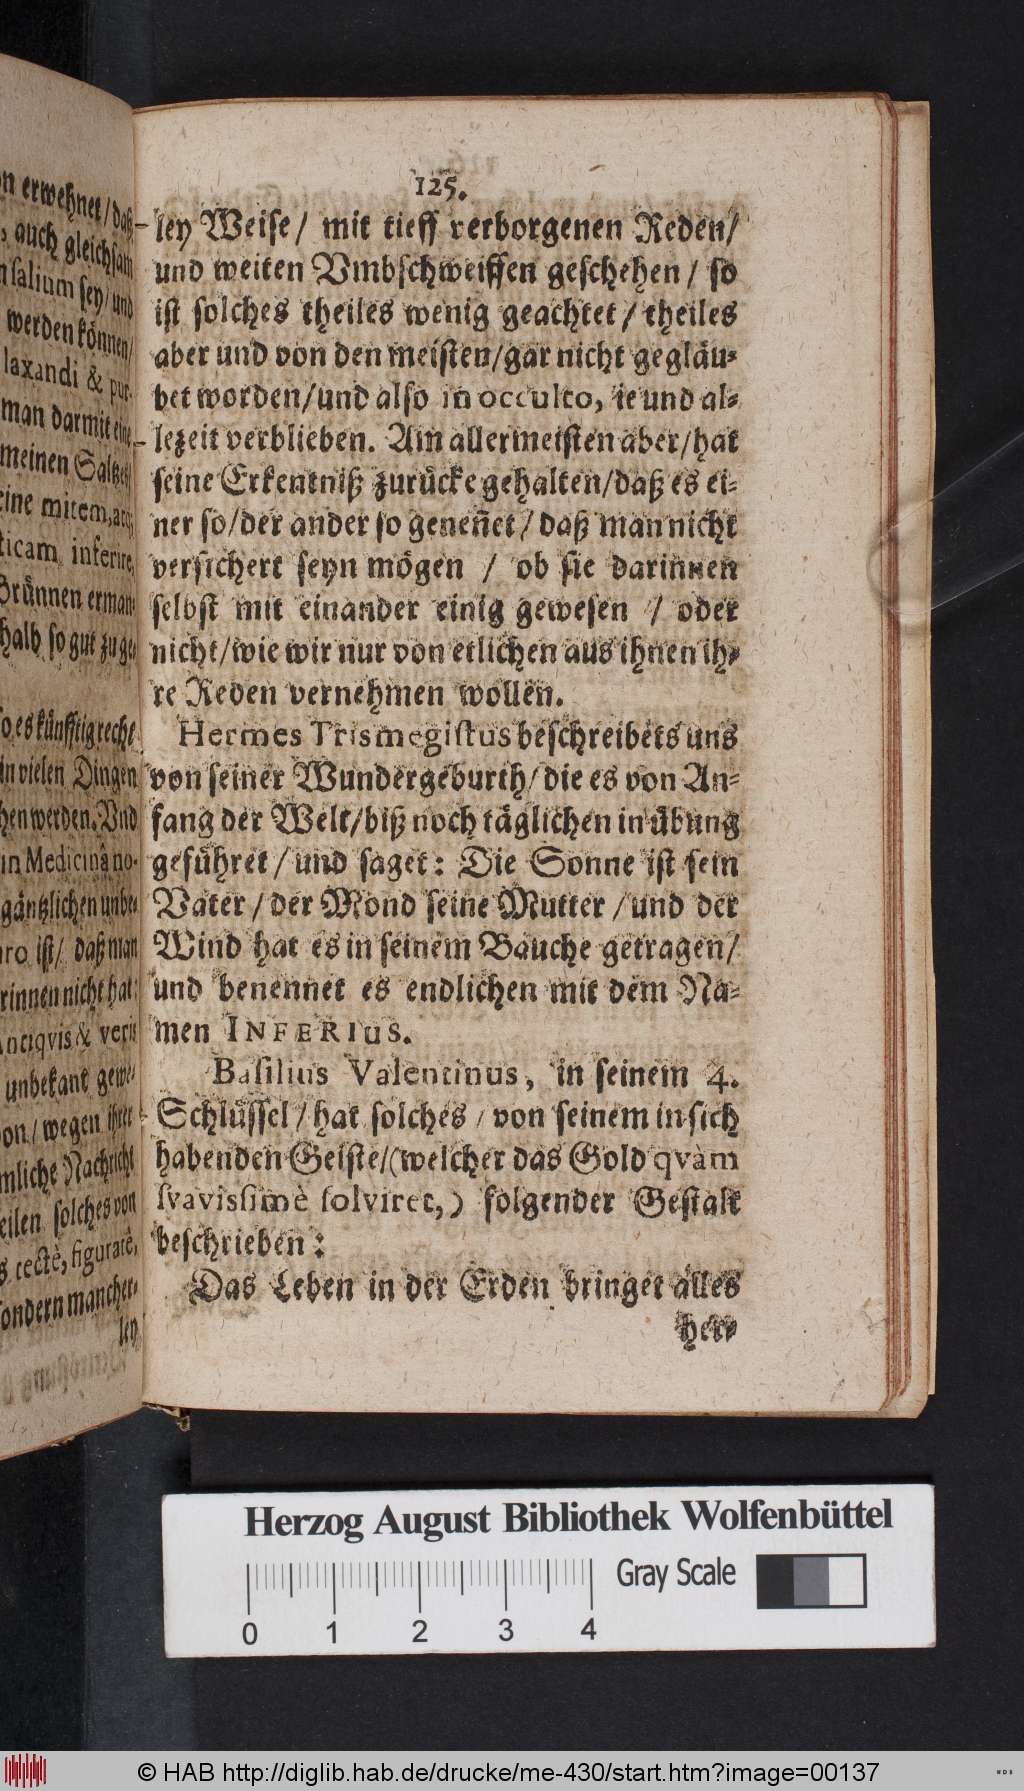 n erwehnet / daß
, auch gleichsam
salium sey / und
werden können /
laxandi & pur-
man darmit eine
meinen Saltzes /
eine mitem, atq;
ticam inferire,
Brünnen erman-
halb so gut zu ge-
so es künfftig recht
in vielen Dingen
hen werden. Vnd
in Medicinâ no-
gäntzlichen unbe-
ro ist / daß man
rinnen nicht hat
Antiqvis & veris
unbekant gewe-
on / wegen ihrer
mliche Nachricht
eilen solches von
s tectè, figuratè,
sondern mancher-
ley
125.
ley Weise / mit tieff verborgenen Reden /
und weiten Vmbschweiffen geschehen / so
ist solches theiles wenig geachtet / theiles
aber und von den meisten / gar nicht gegläu-
bet worden / und also in occulto, ie und al-
lezeit verblieben. Am allermeisten aber / hat
seine Erkentniß zurücke gehalten / daß es ei-
ner so / der ander so geneñet / daß man nicht
versichert seyn mögen / ob sie darinnen
selbst mit einander einig gewesen / oder
nicht / wie wir nur von etlichen aus ihnen ih-
re Reden vernehmen wollen.
Hermes Trismegistus beschreibets uns
von seiner Wundergeburth / die es von An-
fang der Welt / biß noch täglichen in übung
geführet / und saget: Die Sonne ist sein
Vater / der Mond seine Mutter / und der
Wind hat es in seinem Bauche getragen /
und benennet es endlichen mit dem Na-
men INFERIUS.
Basilius Valentinus, in seinem 4.
Schlüssel / hat solches / von seinem in sich
habenden Geiste / (welcher das Gold qvàm
svavissimè solviret,) folgender Gestalt
beschrieben:
Das Leben in der Erden bringet alles
her-
Herzog August Bibliothek Wolfenbüttel
Gray Scale
0 1 2 3 4
© HAB http://diglib.hab.de/drucke/me-430/start.htm?image=00137